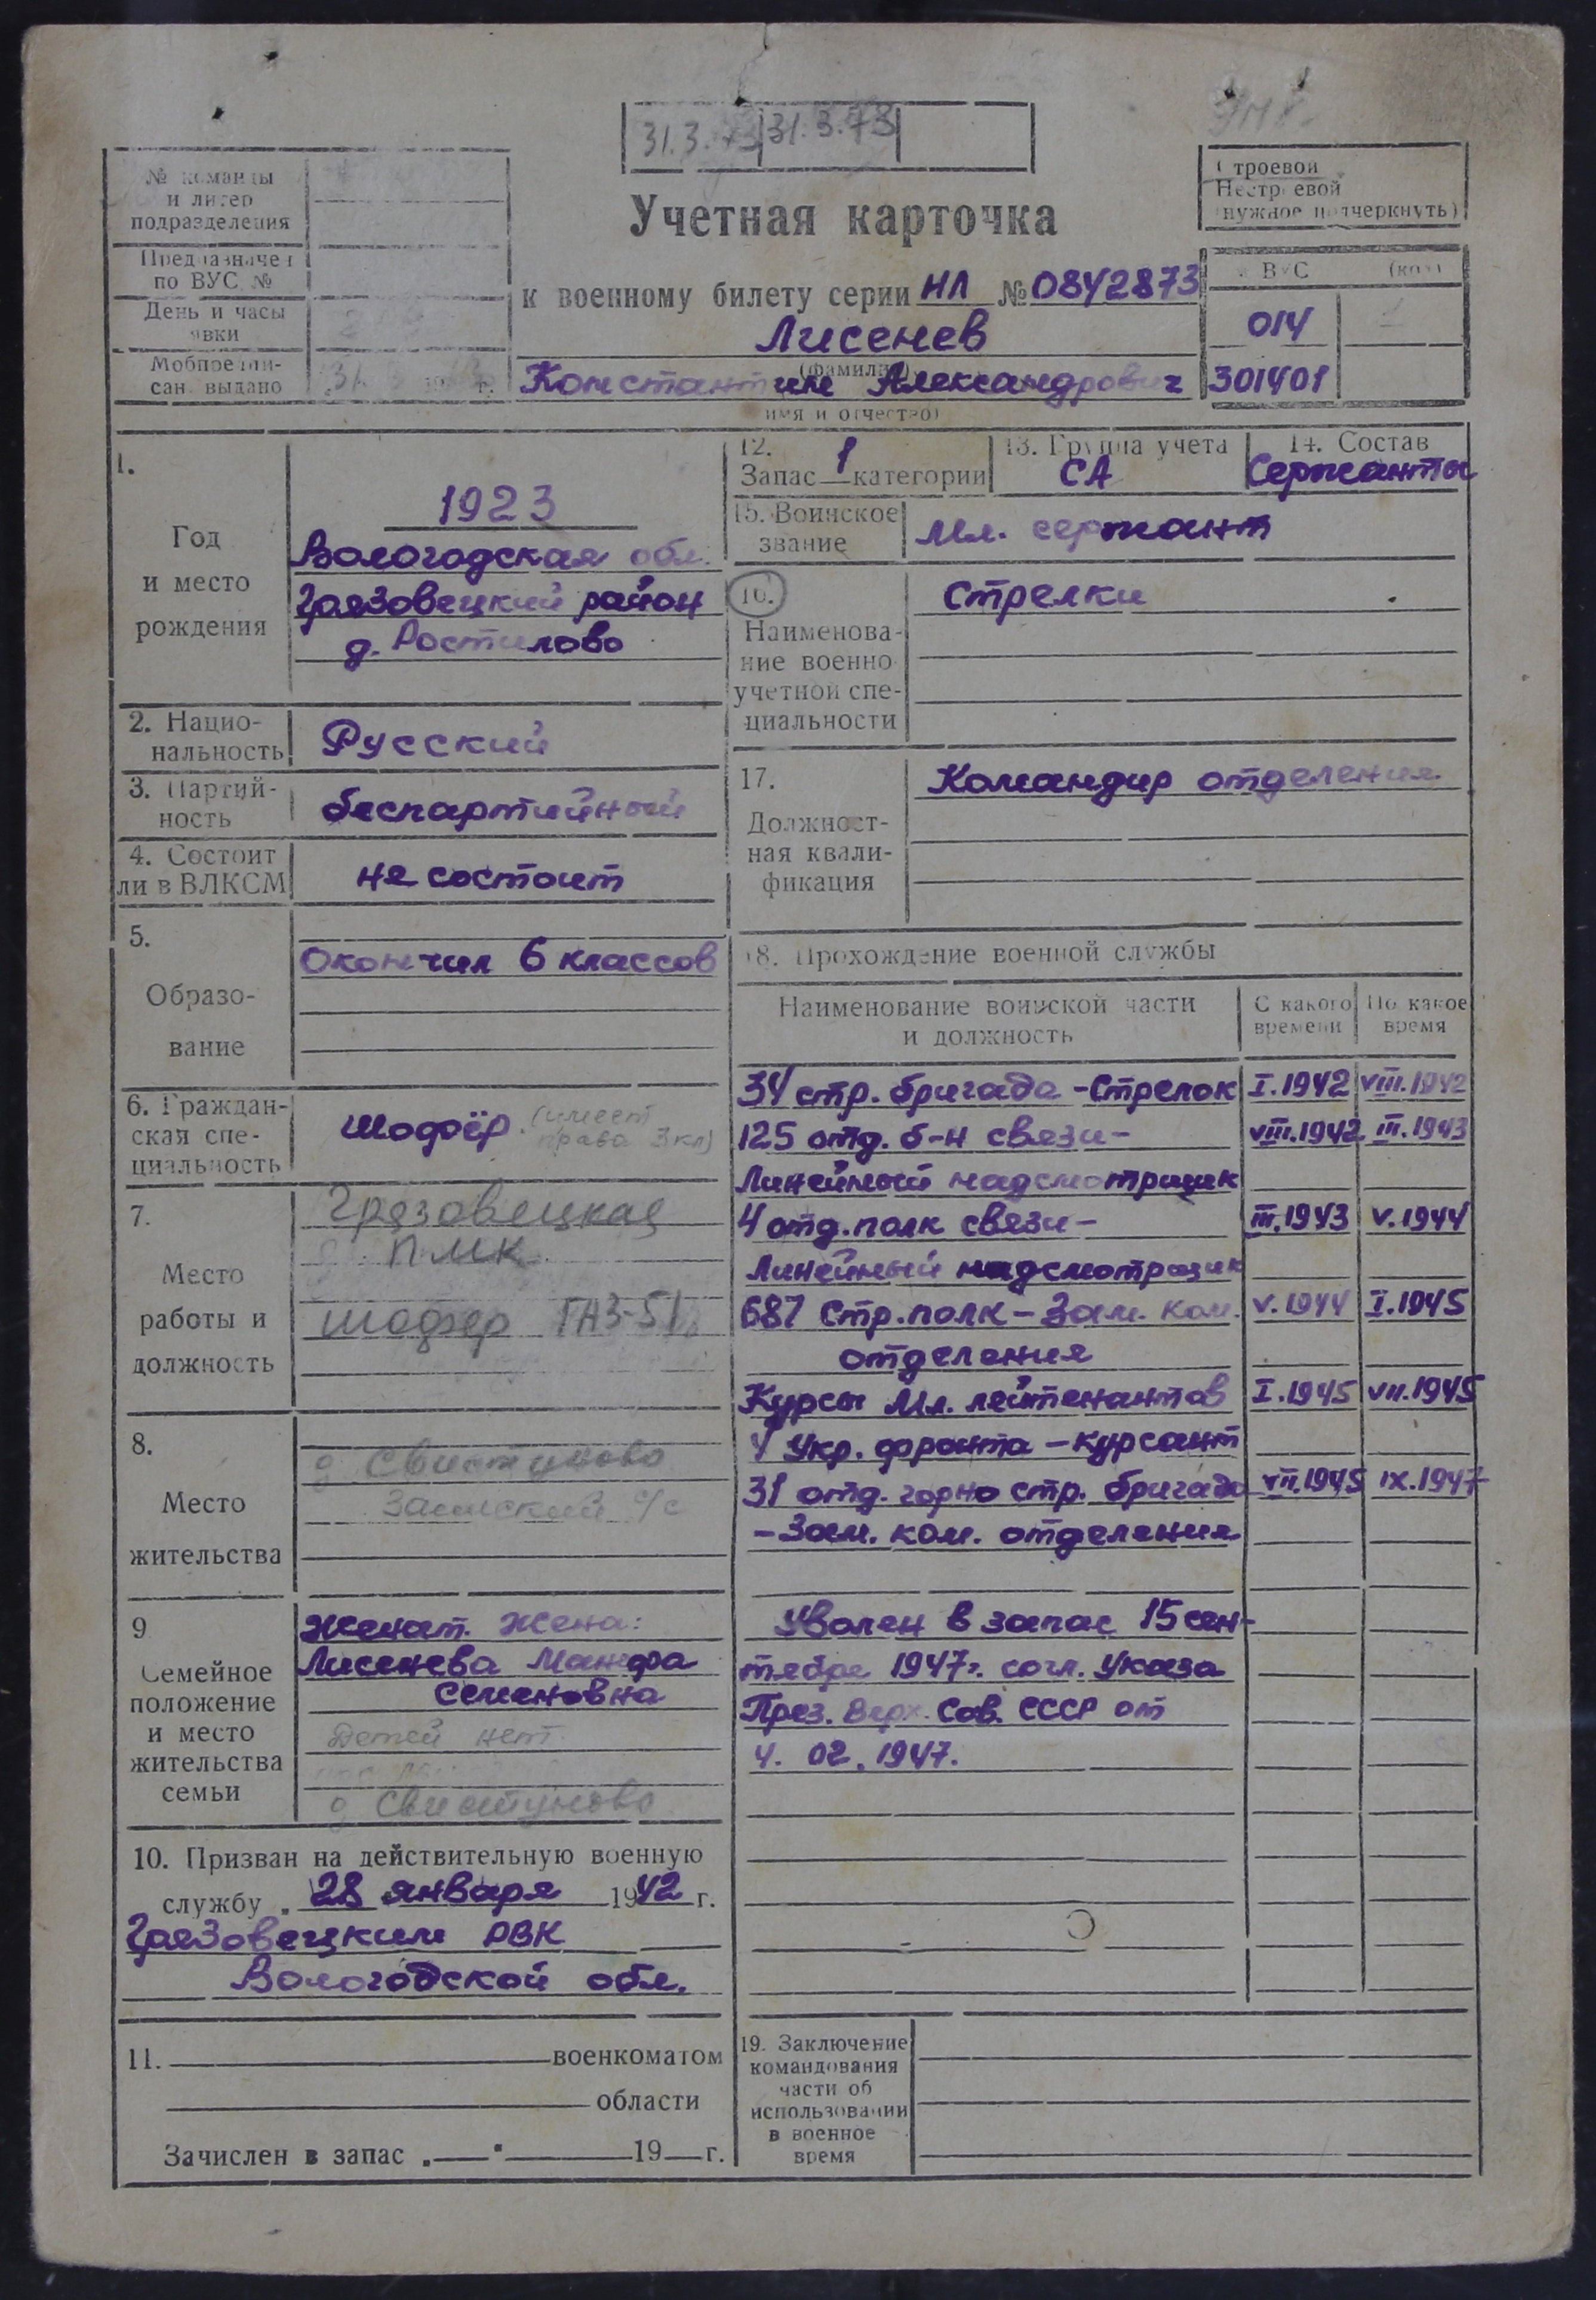 31.3.73 31.3.73
№ команды
и литер
подразделения
Предназначен
по ВУС №
День и часы
явки
Мобпредпи-
сан. выдано
31. г.
Учетная карточка
к военному билету серии НЛ № 0842873
Лисенев
(фамилия)
Константин Александрович
имя и отчество)
Строевой
Нестроевой
(нужное подчеркнуть)
№ ВУС (код)
014
301401
1.
Год
и место
рождения
1923
Вологодская обл.
Грязовецкий район
д. Ростилово
2. Нацио-
нальность
Русский
3. Партий-
ность
беспартийный
4. Состоит
ли в ВЛКСМ
не состоит
5.
Образо-
вание
Окончил 6 классов
6. Граждан-
ская спе-
циальность
Шофёр. (имеет
права 3кл)
7.
Место
работы и
должность
Грязовецкая
ПМК
шофер ГАЗ-51
8.
Место
жительства
д Свистуново
Заемский с/с
9
Семейное
положение
и место
жительства
семьи
Женат. Жена:
Лисенева Манефа
Семеновна
Детей нет.
д Свистуново
10. Призван на действительную военную
службу „ 28 января 1942 г.
Грязовецким РВК
Вологодской обл.
11. военкоматом
области
Зачислен в запас „ " 19 г.
12.
Запас 1 категории
13. Группа учета
СА
14. Состав
Сержанты
15. Воинское
звание
Мл. сержант
16.
Наименова-
ние военно
учетной спе-
циальности
Стрелки
17.
Должност-
ная квали-
фикация
Командир отделения
18. Прохождение военной службы
Наименование воинской части
и должность
С какого
времени
По какое
время
34 стр. бригада - Стрелок I.1942 VIII.1942
125 отд. б-н связи - VIII.1942 III.1943
Линейный надсмотрщик
4 отд. полк связи - III.1943 V.1944
Линейный надсмотрщик
687 Стр. полк - Зам. ком. V.1944 I.1945
отделения
Курсы Мл. лейтенантов I.1945 VII.1945
4 Укр. фронта - курсант
31 отд. горно стр. бригада VII.1945 IX.1947
- Зам. ком. отделения
Уволен в запас 15 сен-
тября 1947г. согл. Указа
През. Верх. Сов. СССР от
4. 02. 1947.
19. Заключение
командования
части об
использовании
в военное
время